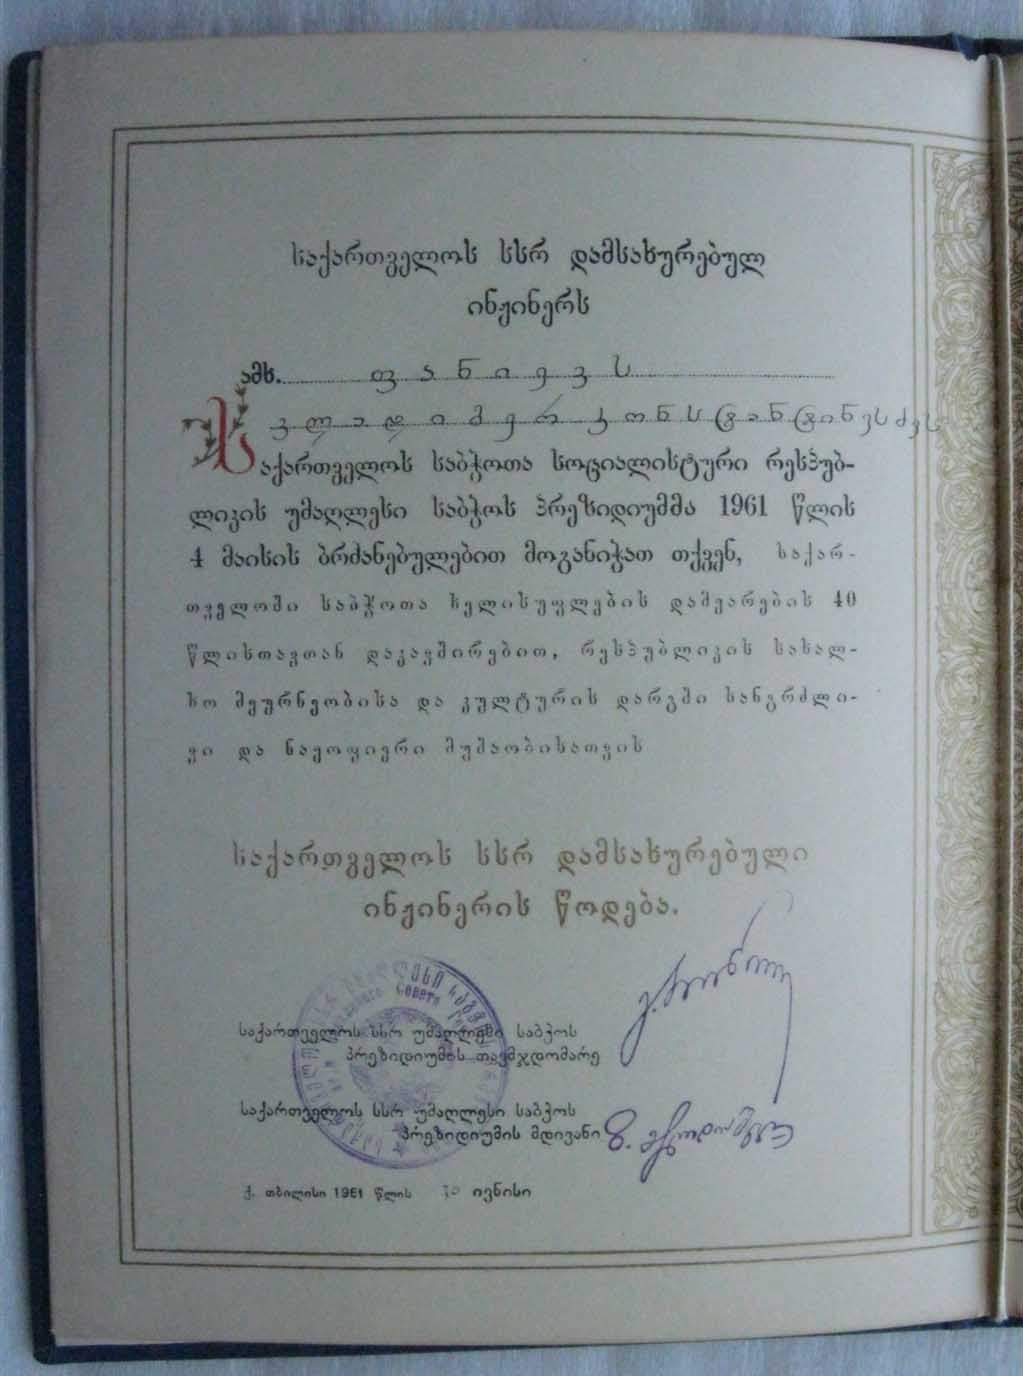 საქართველოს სსრ დამსახურებულ
ინჟინერს
ამხ. ფანიევს
ვლადიმერ კონსტანტინეს ძეს
საქართველოს საბჭოთა სოციალისტური რესპუბ-
ლიკის უმაღლესი საბჭოს პრეზიდიუმმა 1961 წლის
4 მაისის ბრძანებულებით მოგანიჭათ თქვენ, საქარ-
თველოში საბჭოთა ხელისუფლების დამყარების 40
წლისთავთან დაკავშირებით, რესპუბლიკის სახალ-
ხო მეურნეობისა და კულტურის დარგში ხანგრძლი-
ვი და ნაყოფიერი მუშაობისათვის
საქართველოს სსრ დამსახურებული
ინჟინერის წოდება.
საქართველოს სსრ უმაღლესი საბჭოს
პრეზიდიუმის თავმჯდომარე
საქართველოს სსრ უმაღლესი საბჭოს
პრეზიდიუმის მდივანი
ქ. თბილისი 1961 წლის ივნისი